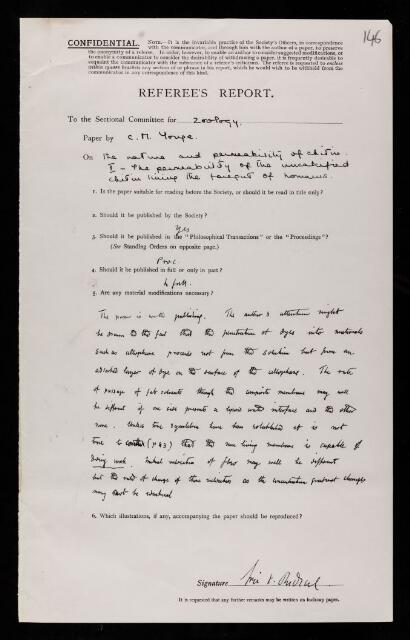 146
CONFIDENTIAL. NOTE.—It is the invariable practice of the Society's Officers, in correspondence
with the communicator, and through him with the author of a paper, to preserve
the anonymity of a referee. In order, however, to enable an author to consider suggested modifications, or
to enable a communicator to consider the desirability of withdrawing a paper, it is frequently desirable to
acquaint the communicator with the substance of a referee's criticisms. The referee is requested to enclose
within square brackets any section of or phrase in his report, which he would wish to be withheld from the
communicator in any correspondence of this kind.
REFEREE'S REPORT.
To the Sectional Committee for Zoology.
Paper by C. M. Yonge.
On The nature and permeability of chitin.
I - The permeability of the uncalcified
chitin lining the foregut of Homarus.
1. Is the paper suitable for reading before the Society, or should it be read in title only?
2. Should it be published by the Society?
Yes
3. Should it be published in the "Philosophical Transactions" or the "Proceedings"?
(See Standing Orders on opposite page.)
Proc.
4. Should it be published in full or only in part?
In full.
5. Are any material modifications necessary?
The paper is worth publishing. The author's attention might
be drawn to the fact that the penetration of dyes into materials
such as cellophane proceeds not from the solution but from an
adsorbed layer of dye on the surface of the cellophane. The rate
of passage of fat solvents through the composite membrane may well
be different if one side presents a lipoid water interface and the other
none. Unless true equilibria have been established it is not
true to (p 43) that the non living membrane is capable of
doing work. Initial velocities of flow may well be different
but the rate of change of these velocities as the concentration gradient changes
may be identical
6. Which illustrations, if any, accompanying the paper should be reproduced?
Signature Eric K. Rideal
It is requested that any further remarks may be written on foolscap paper.